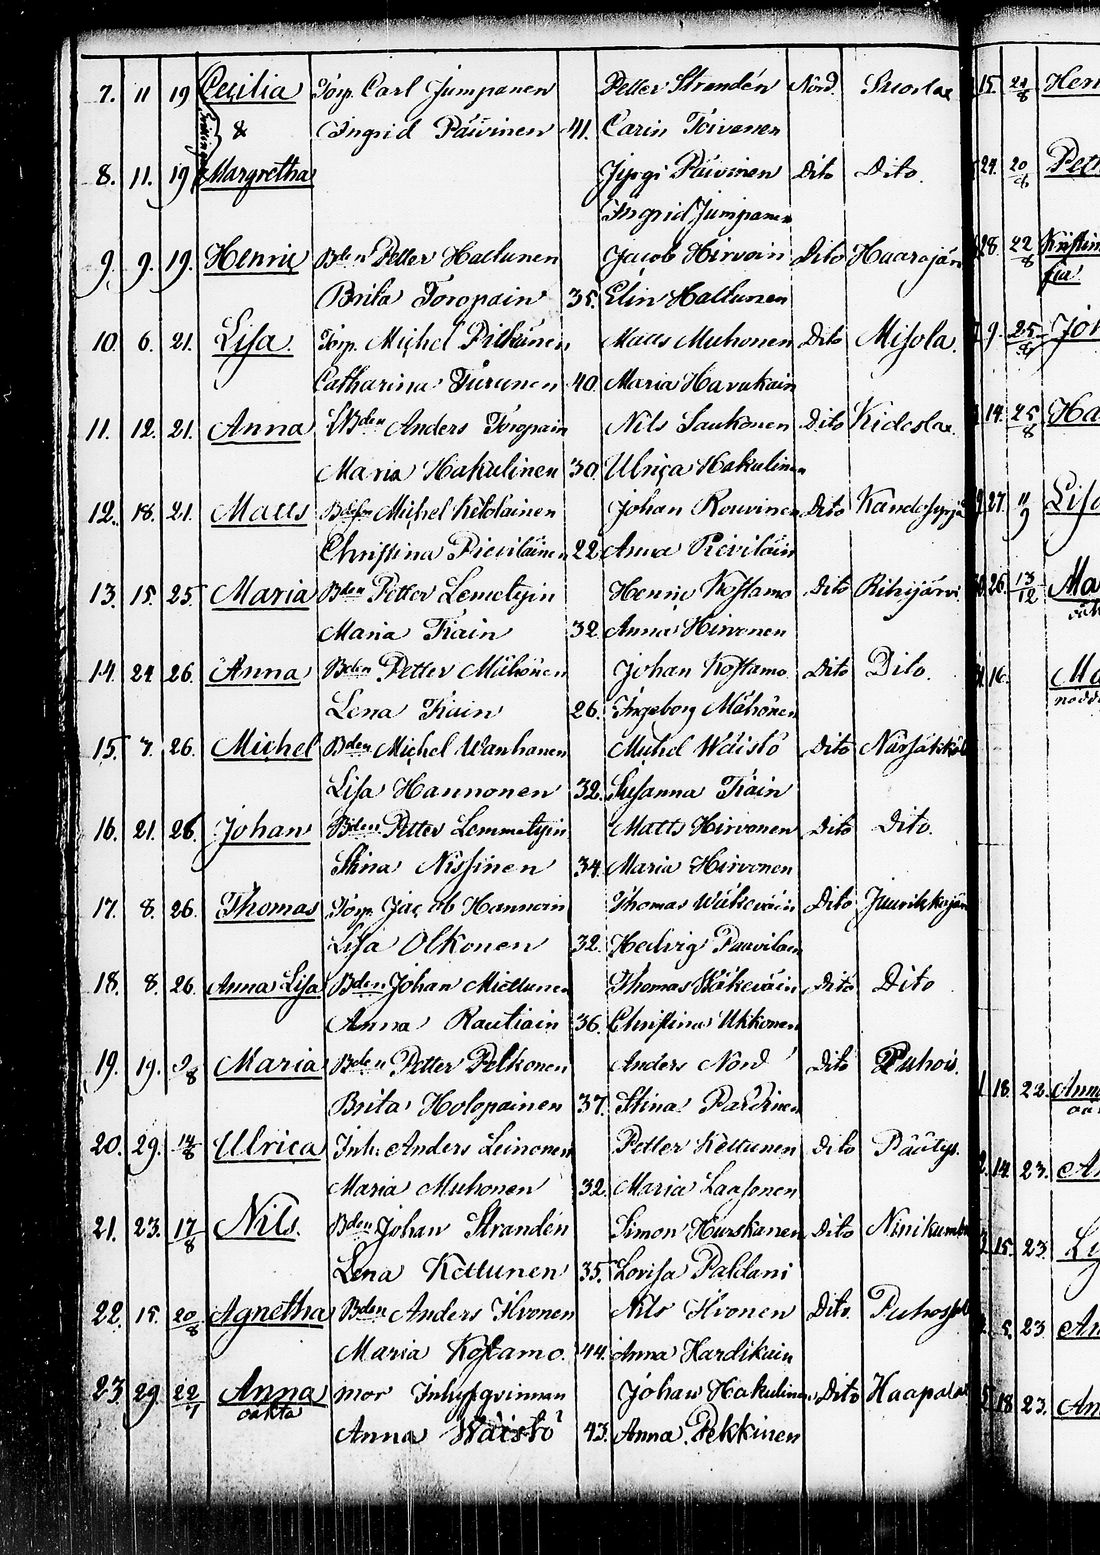 7. 11 19 Cecilia Torp. Carl Jumpanen Petter Strandén Nord. Suorlax
& Ingrid Päivinen 41. Carin Toivanen
8. 11. 19 Margretha Jyrgi Päivinen Dito Dito.
Ingrid Jumpanen
9. 9. 19. Henric Bden Petter Hallunen Jacob Hirvoin Dito Haarajär
Brita Toropain 35. Elin Hallunen
10. 6. 21. Lisa. Torp. Michel Pitkänen Matts Muhonen Dito Misola.
Catharina Turunen 40 Maria Havukain
11. 12. 21. Anna Bden Anders Toropain Nils Saukonen Dito Kideslax
Maria Hakulinen 30. Ulrica Hakulinen
12. 18. 21. Matts Bdeson Michel Kitolainen Johan Rouvinen Dito
Christina Pieviläinen 22. Anna Pieviläin
13. 15. 25 Maria Bden Petter Lemetyin Henric Kostamo Dito Riihijärvi
Maria Tiain 32. Anna Hirvonen
14. 24 26. Anna Bden Petter Mähönen Johan Kostamo. Dito Dito.
Lena Tiain 26. Ingeborg Mähönen
15. 7. 26. Michel Bden Michel Wanhanen Michel Wäistö Dito
Lisa Hannonen 32. Susanna Tiain
16. 21. 26. Johan Bden Petter Lemmetyin Matts Hirvonen Dito Dito.
Stina Nissinen 34. Maria Hirvonen
17. 8. 26. Thomas Torp. Jacob Hannoin Thomas Wäkeväin Dito
Lisa Olkonen 32. Hedvig Pauvilain
18. 8. 26. Anna Lisa Bden Johan Miettunen Thomas Wäkeväin Dito Dito
Anna Rautiain 36. Christina Ukkonen
19. 19. 2/8 Maria Bden Petter Pelkonen Anders Nord Dito Puhois.
Brita Holopainen 37. Stina Pardinen
20. 29. 14/8 Ulrica Inh: Anders Leinonen Petter Kettunen Dito
Maria Muhonen 32. Maria Laasonen
21. 23. 17/8 Nils. Bden Johan Strandén Simon Hurskanen Dito
Lena Kettunen 35. Lovisa Paldani
22. 15. 20/8 Agnetha Bden Anders Ikonen Nils Ikonen Dito.
Maria Kostamo. 44. Anna Hardikain
23. 29. 22/7 Anna mor Inhysqvinnan Johan Hakulinen Dito Haapalax
oäkta Anna Wäistö 43. Anna Pekkinen
15. 21/8 Hen
24. 20/8 Pet
28. 22/8
9. 25/8 Joh
14. 25/8 Ha
27. 11/9 Lisa
26. 13/12 Ma
16. Ma
18. 22. Anna
14. 23. An
15. 23.
5. 23 An
18 23. An